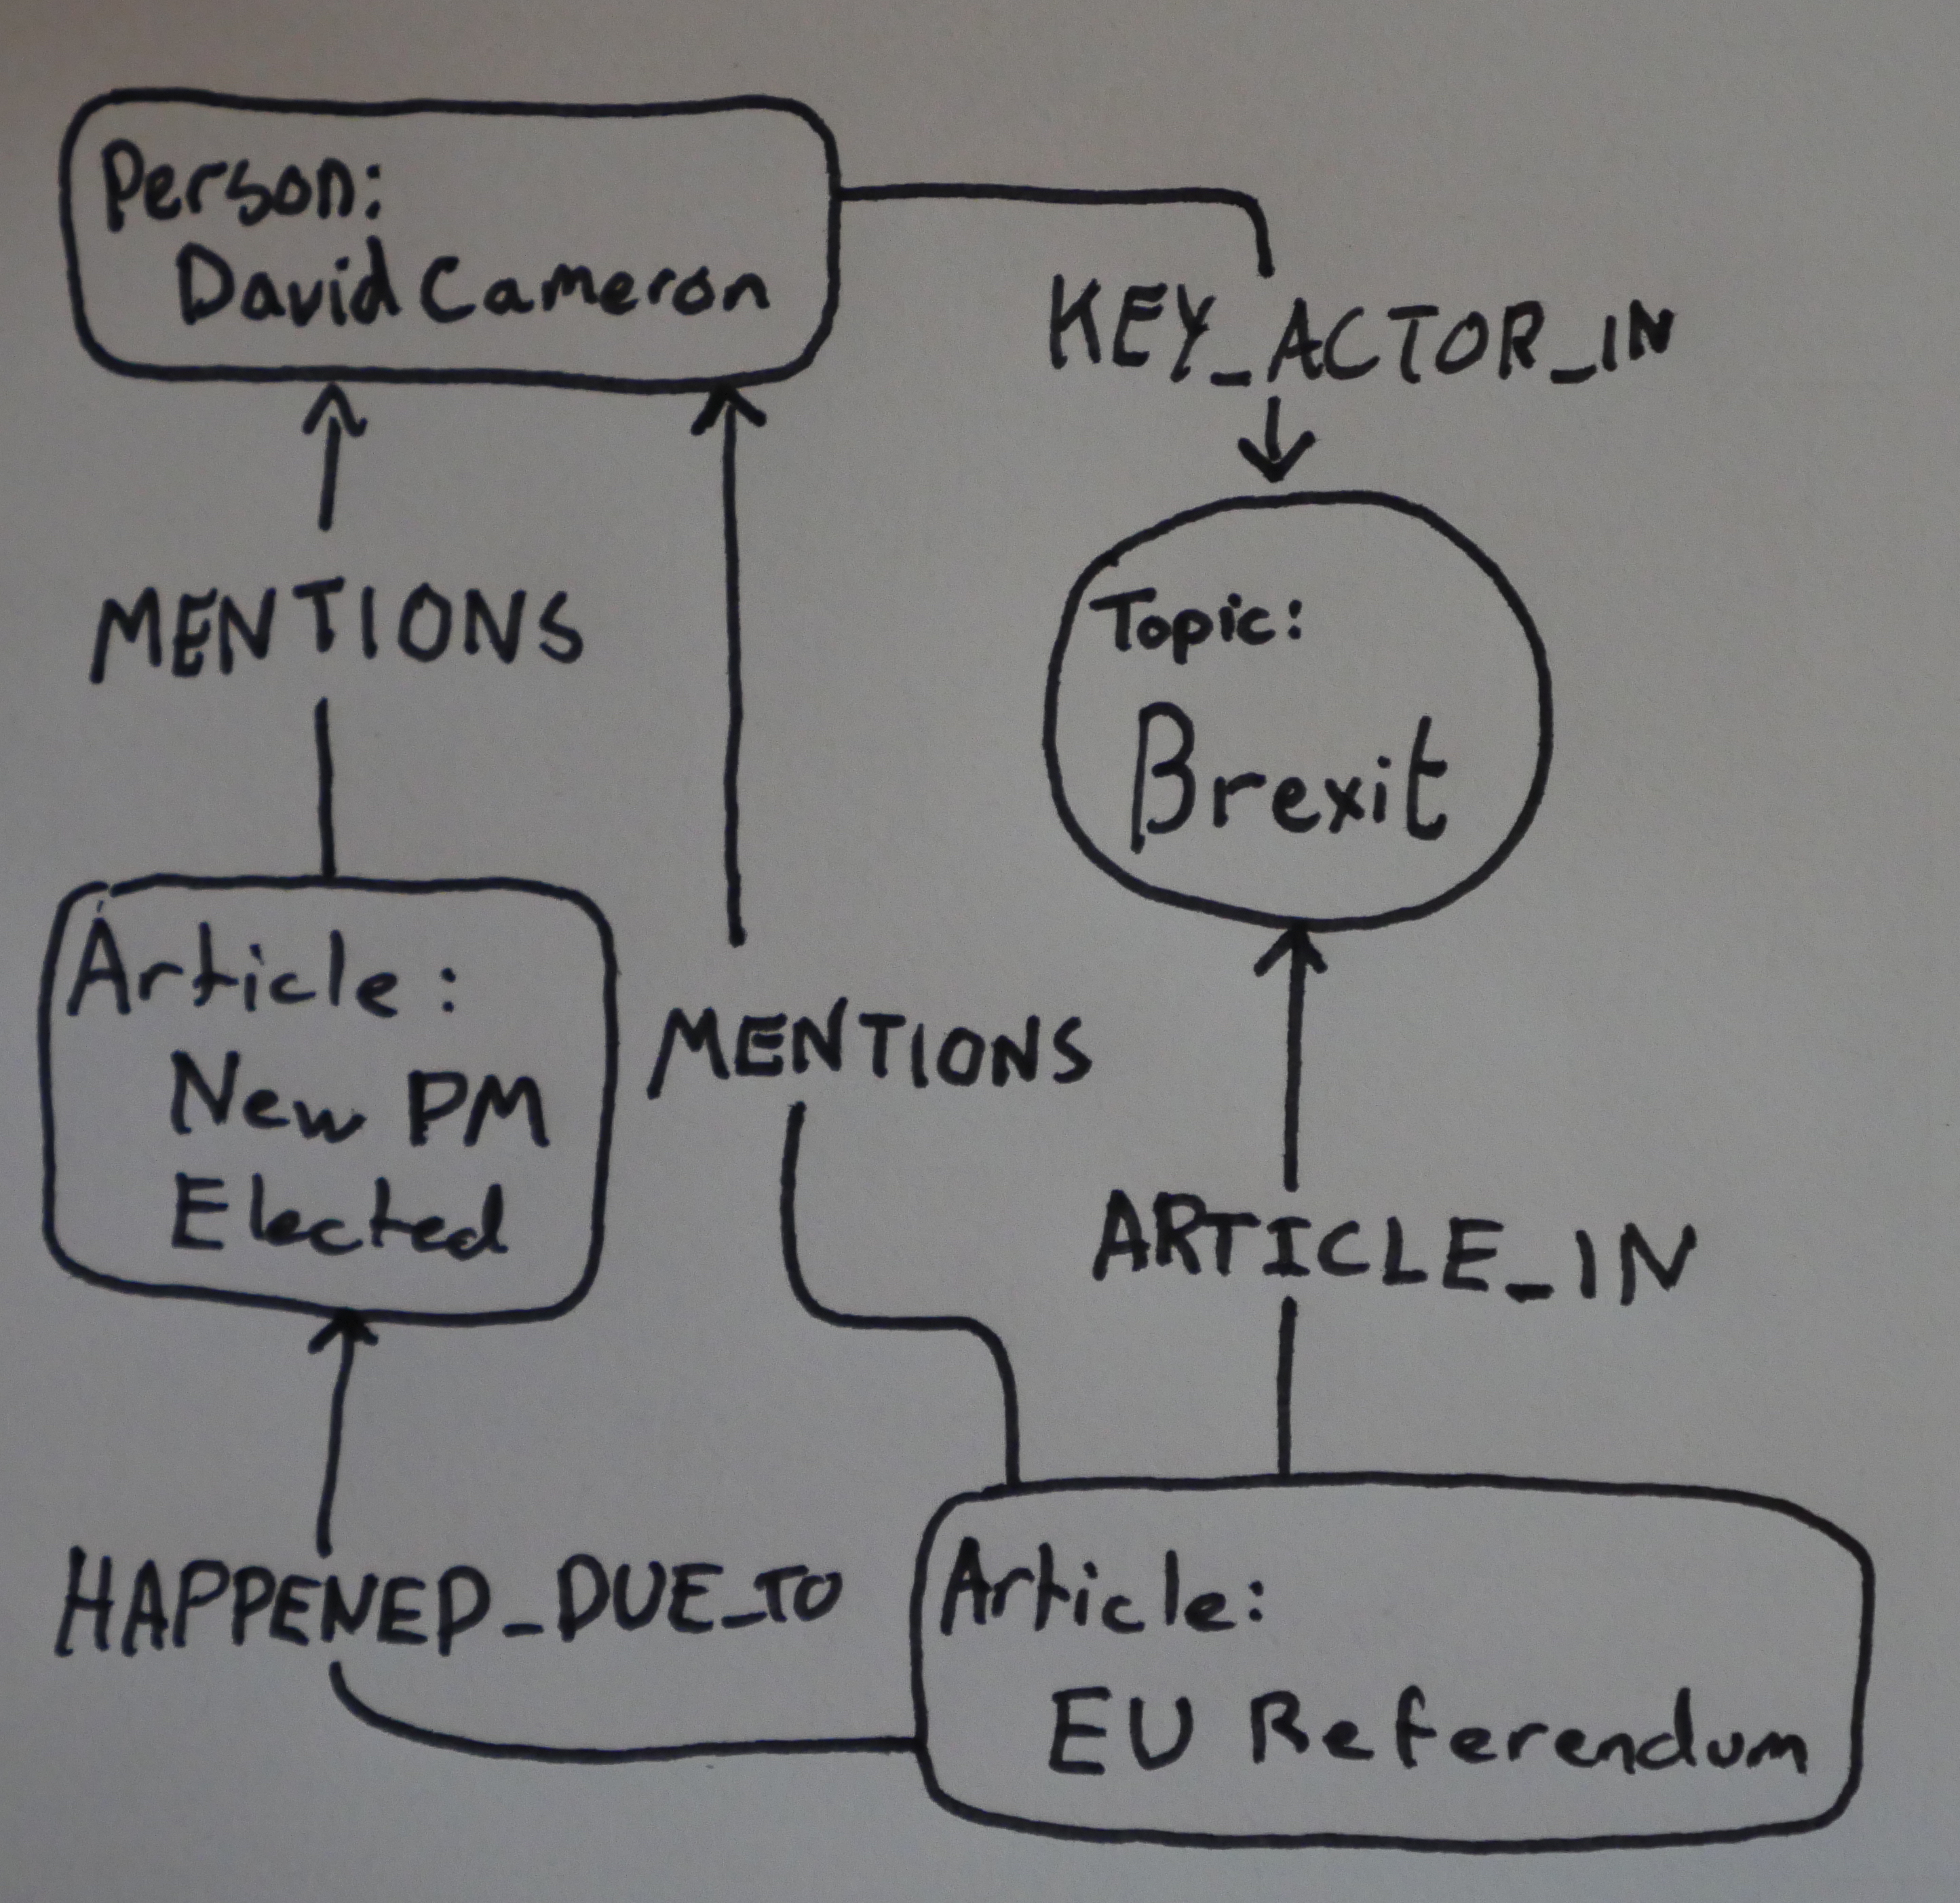 Person:
David Cameron
KEY_ACTOR_IN
MENTIONS
Topic:
Brexit
Article:
New PM
Elected
MENTIONS
ARTICLE_IN
HAPPENED_DUE_TO
Article:
EU Referendum